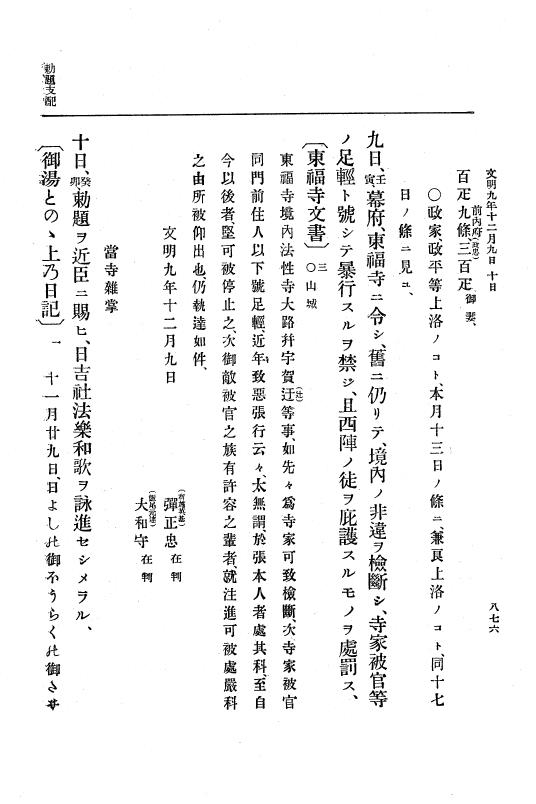 文明九年十二月九日 十日
八七六
前内府(政忠)
百疋九條三百疋御妻、
〇政家、政平等上洛ノコト、本月十三日ノ條ニ、兼良上洛ノコト、同十七
日ノ條ニ見ユ、
九日、壬寅、幕府、東福寺ニ令シ、舊ニ仍リテ、境内ノ非違ヲ檢斷シ、寺家被官等
ノ足輕ト號シテ暴行スルヲ禁ジ、且西陣ノ徒ヲ庇護スルモノヲ處罰ス、
〔東福寺文書〕三〇山城
東福寺境内法性寺大路幷宇賀辻(辻)等事、如先々爲寺家可致檢斷、次寺家被官
同門前住人以下號足輕、近年致惡張行云々、太無謂、於張本人者處其科、至自
今以後者、堅可被停止之、次御敵被官之族有許容之輩者、就注進可被處嚴科
之由所被仰出也、仍執達如件、
文明九年十二月九日
彈正忠在判
大和守在判
當寺雜掌
十日、癸卯、勅題ヲ近臣ニ賜ヒ、日吉社法樂和歌ヲ詠進セシメラル、
〔御湯とのゝ上乃日記〕一 十一月廿九日、日よし㐂御ほうらく㐂御さ㐂
勅題支配